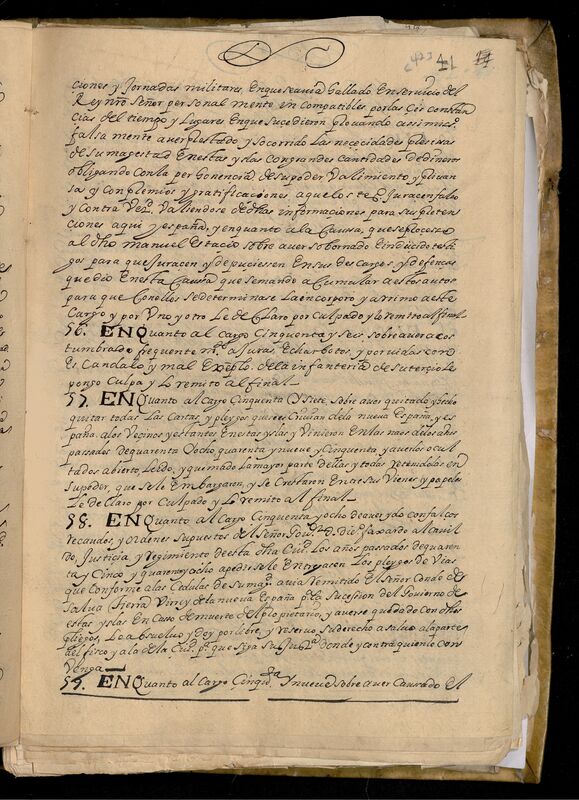 423 41
ciones y Jornadas militares, Enque auia hallado En seruicio del
Rey nro señor personal mente, en compatibles, por las circonstan
cias del tiempo y Lugares Enque sucedieron prouando assimismo
falsa mente auer prestado, y socorrido las necesidades precisas
de su magestad En estas yslas con grandes cantidades de dineros
obligando con la per de su poder Valimiento, y priuan
sas y con premios y gratificaciones, a que los tesº Juracen falso
y contra Verd. Valiendose de dhas informaciones para sus preten
ciones aqui y españa, y en quanto a la Causa, que se proceso
al dho manuel Estacio sobre auer sobornado E inducido testi
gos para que Juracen y depuciessen En sus descargos, y defensas
que dio En esta Causa que se mando acumular a estos autos
para que Con ellos se determinase La incorporo y arrimo a este
Cargo y por Vno y otro Le declaro por culpado y lo remito al final
56. ENQuanto al cargo Cinquenta y seis, sobre auer acos
tumbrado frequente mte. a Juras, Echar botos, y por vidas con
Escandalo y mal Exeplo. de la infanteria de su tercio le
pongo Culpa y Lo remito al final.
57. ENQuanto al Cargo Cinquenta y siete, sobre auer quitado y hecho
quitar todas Las Cartas y pliegos que se escriuian de la nueva España, y es
paña. a los Vezinos y estantes En estas yslas y Vinieron En las naos de los años
passados de quarenta y ocho quarenta y nueue y Cinquenta, y auerlos ocul
tados abierto, Leido, y quemado La mayor parte dellas y todas retenidolas en
su poder, que se le Embargaron, y se Entre sus Vienes y papeles
Le declaro por culpado y Lo remito al final.
58. ENQuanto al Cargo Cinquenta y ocho de auer ydo con falços
recaudos, y ordenes supuestos del señor Gour. D. diego faxardo al Cauil
do, Justicia y regimiento desta dha Ciud. Los años passados de quaren
ta y Cinco y quarenta y ocho a pedir se le Entregasen Los pliegos de Vias
que Conforme a las Cedulas de su magd. auia remitido El señor Conde de
Salua tierra Virrey de la nueva España pa. la sucesion del Gouierno de
estas yslas En Caso de muerte del propietario, y auerse quedado con dhos
pliegos, Le absueluo y doy por libre, y reseruo su derecho a saluo a la parte
del fisco y a la de la Ciud. pa. que siga su Justa. donde y contra quien le con
Venga
59. ENQuanto al Cargo Cinquta. y nueue, sobre auer Causado El